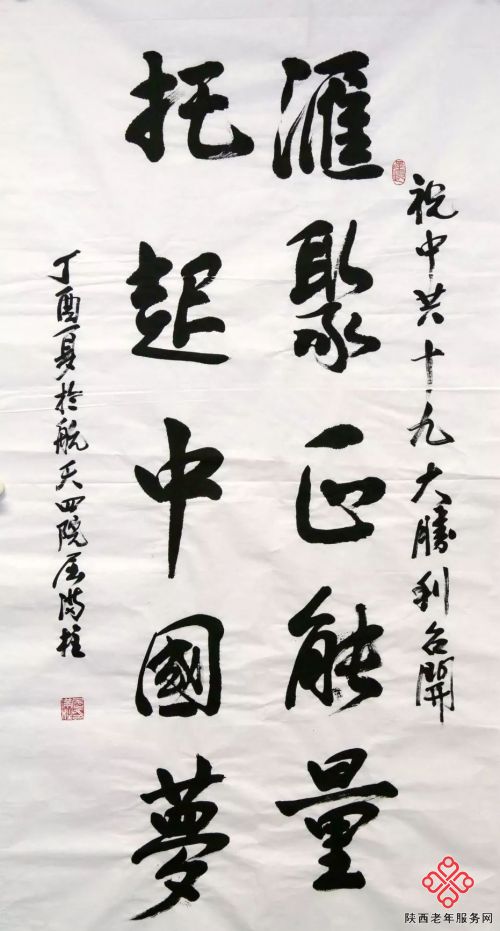 祝中共十九大勝利召開
滙聚正能量
托起中國夢
丁酉夏於航天四院
陕西老年服务网